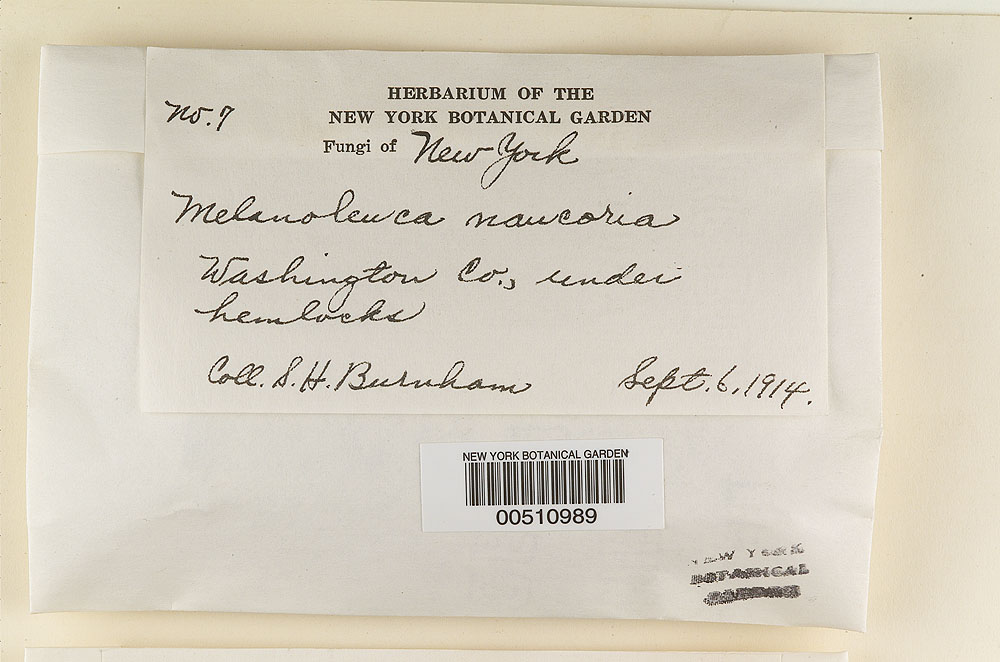 HERBARIUM OF THE
No. 7 NEW YORK BOTANICAL GARDEN
Fungi of New York
Melanoleuca naucoria
Washington Co., under
hemlocks
Coll. S. H. Burnham Sept. 6, 1914.
NEW YORK BOTANICAL GARDEN
00510989
NEW YORK
BOTANICAL
GARDEN